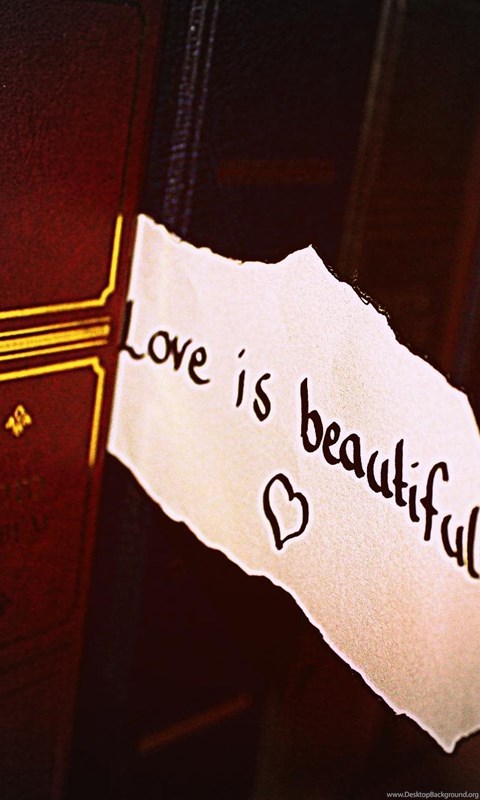 Love is beautiful
♡
www.DesktopBackground.org